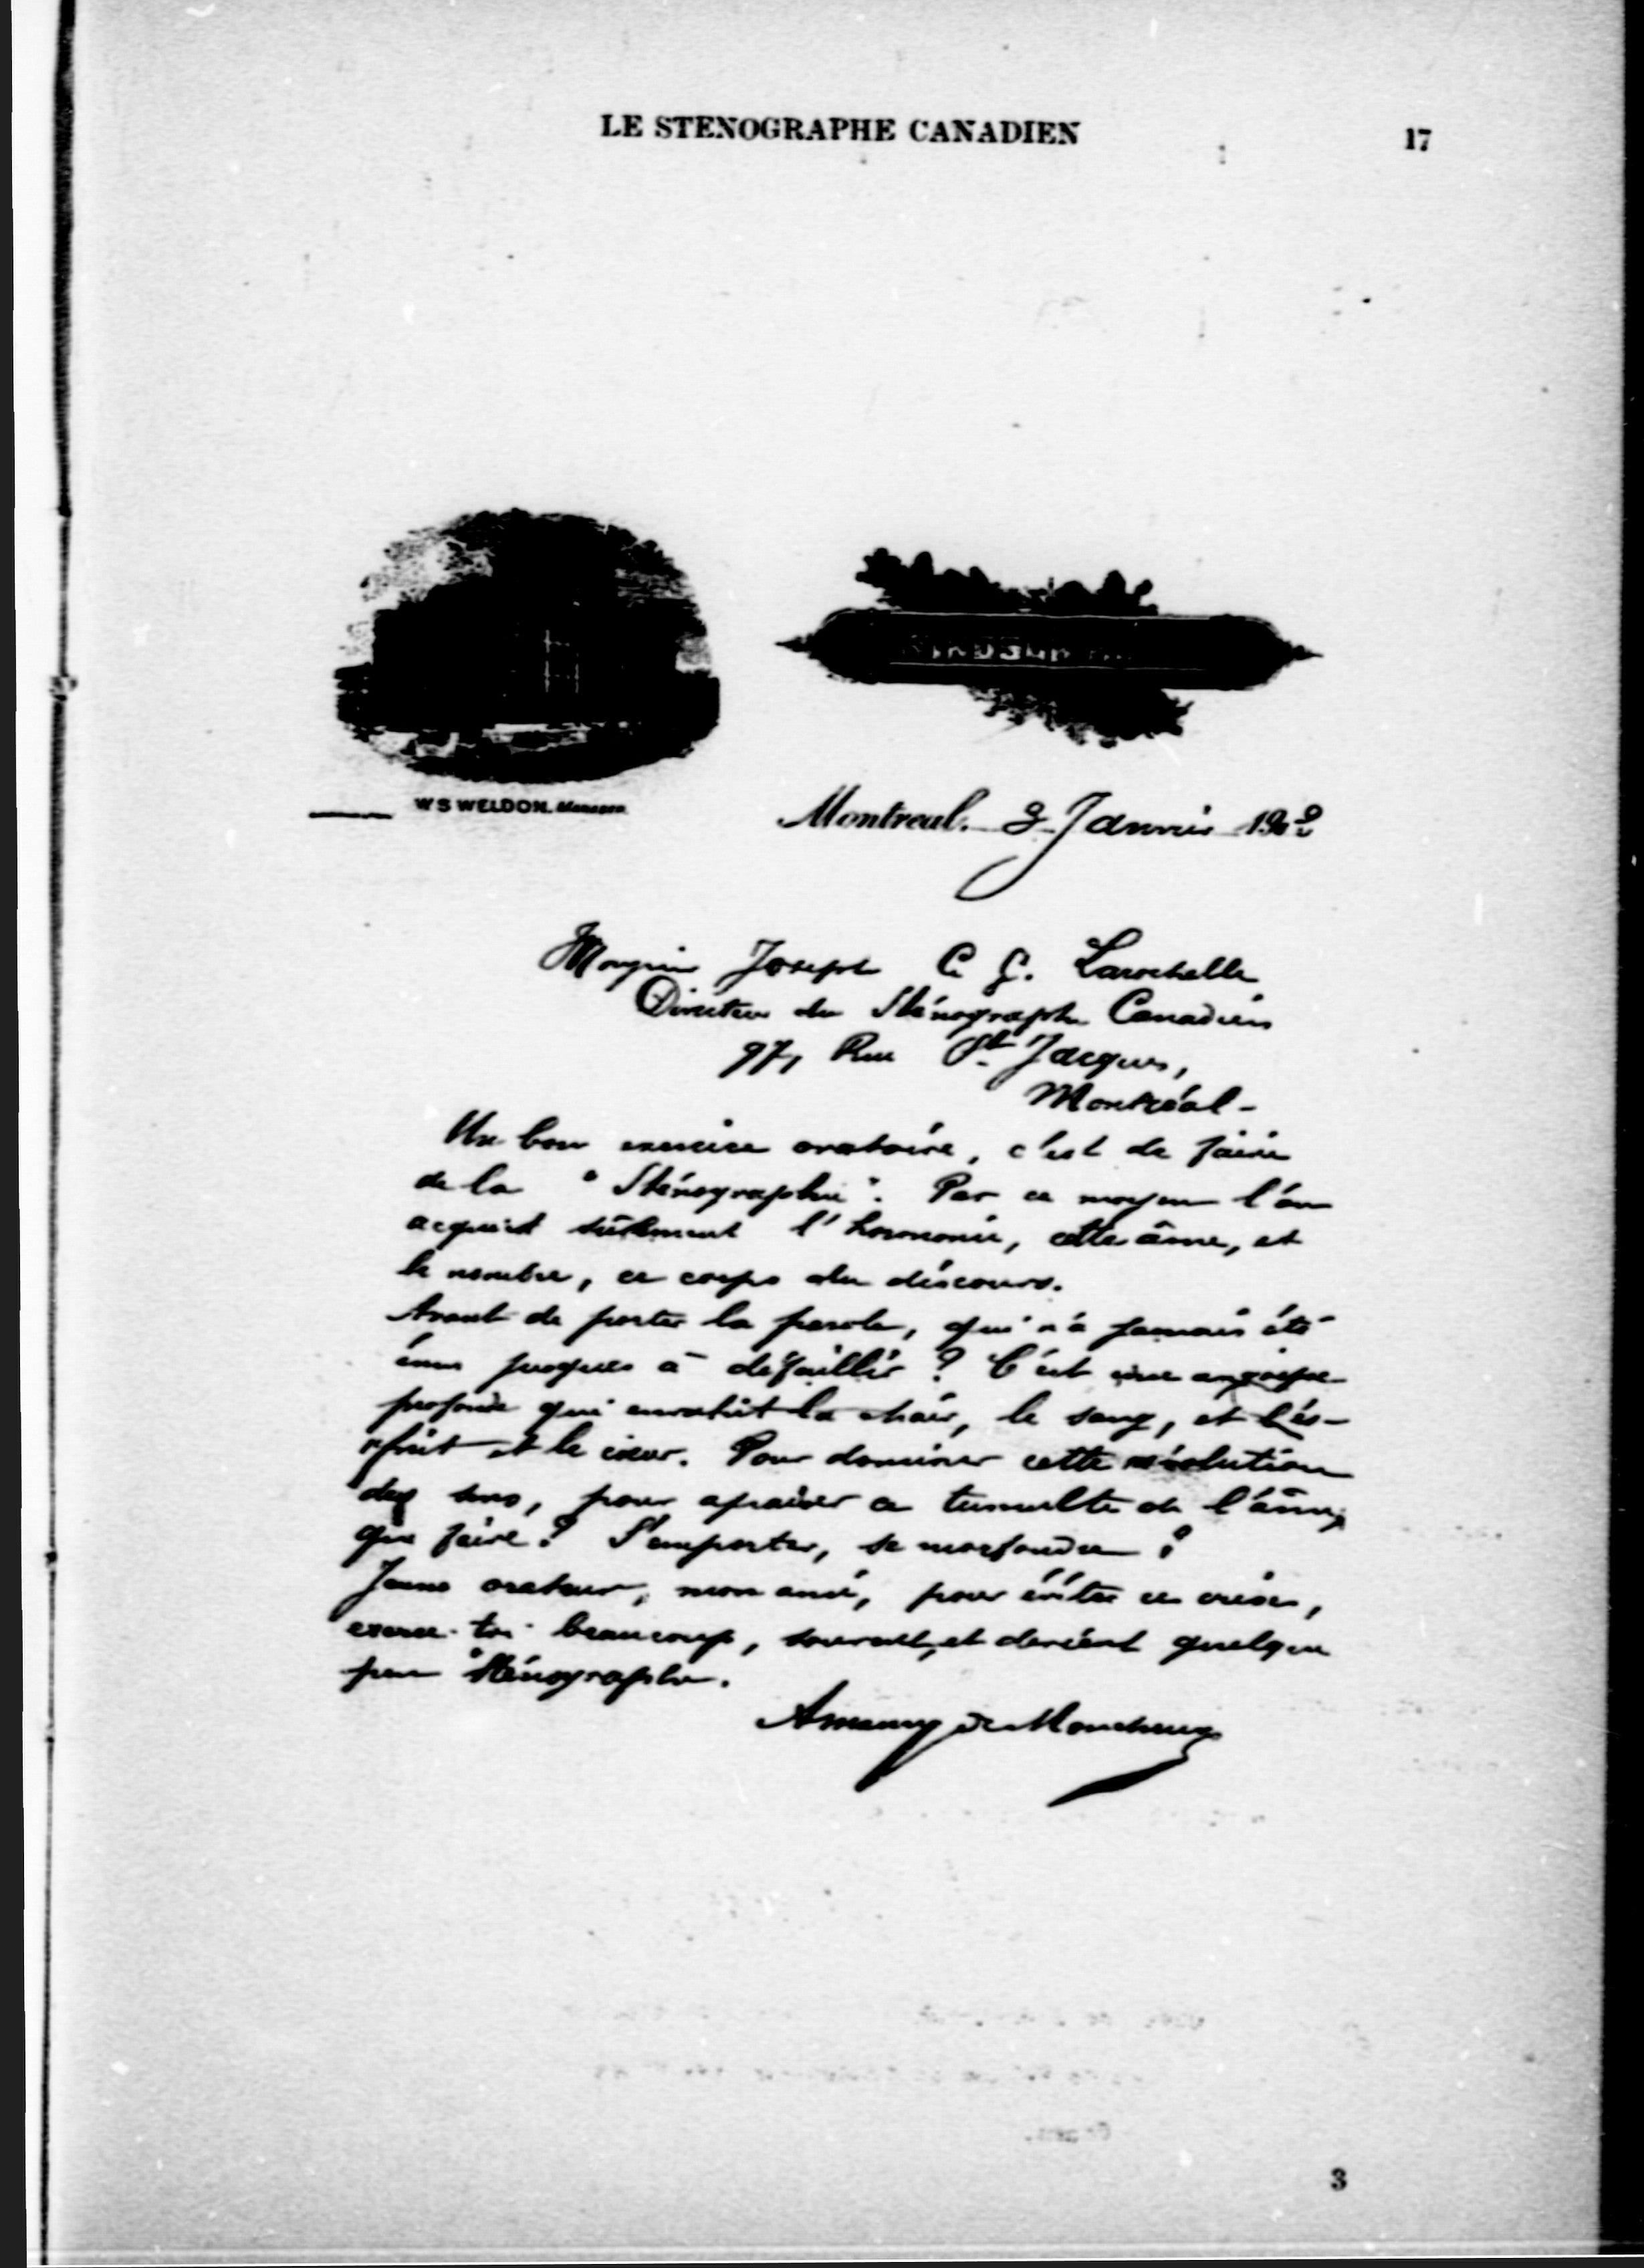 LE STENOGRAPHE CANADIEN
17
W S WELDON. Manager
Montreal. 3 Janvier 190
Monsieur Joseph C. G. Larochelle
Directeur du Sténographe Canadien
97, Rue St. Jacques,
Montréal -
Un bon exercice oratoire, c'est de faire
de la "Sténographie". Par ce moyen l'on
acquiert sûrement l'harmonie, cette âme, et
le nombre, ce corps du discours.
Avant de porter la parole, qui n'a jamais été
ému jusques à défaillir ? C'est une angoisse
profonde qui envahit la chair, le sang, et l'es-
prit et le cœur. Pour dominer cette révolution
des sens, pour apaiser ce tumulte de l'âme,
que faire ? S'emporter, se morfondre ?
Jeune orateur, mon ami, pour éviter ces crises,
exerce-toi beaucoup, souvent, et devient quelque
peu Sténographe.
3